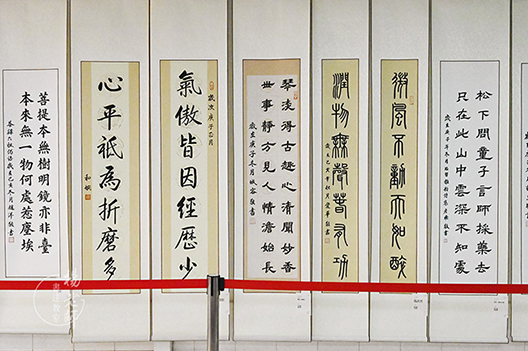 松下問童子言師採藥去
只在此山中雲深不知處
微風不動天如醉
潤物無聲春有功
琴淡得古趣心清聞妙香
世事靜方見人情澹始長
歲在庚子冬月
敬書
氣傲皆因經歷少
歲次庚子
心平祗為折磨多
菩提本無樹明鏡亦非臺
本來無一物何處惹塵埃